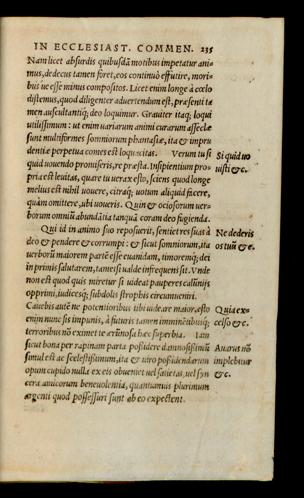 IN ECCLESIAST. COMMEN. 235
Nam licet absurdis quibusdã motibus impetatur ani-
mus, dedecus tamen foret, eos continuò effutire, mori-
bus ue esse minus compositos. Licet enim longe à cœlo
distemus, quod diligenter aduertendum est, præsenti ta
men auscultantiq; deo loquimur. Grauiter itaq; loqui
utilissimum: ut enim uariarum animi curarum asseclæ
sunt multiformes somniorum phantasiæ, ita & impru
dentiæ perpetua comes est loquacitas. Verum tu si
Si quid uo
quid uouendo promiseris, re præsta. Insipientium pro-
uisti &c.
pria est leuitas, quare tu uerax esto, sciens quod longe
melius est nihil uouere, citraq; uotum aliquid facere,
quàm omittere, ubi uoueris. Quin & ociosorum uer-
borum omniũ abundãtia tanquã coram deo fugienda.
Qui id in animo suo reposuerit, sentiet res suas à
Ne dederis
deo & pendere & corrumpi: & sicut somniorum, ita
os tuũ & c.
uerborũ maiorem partẽ esse euanidam, timoremq; dei
in primis salutarem, tametsi ualde infrequens sit. Vnde
non est quod quis miretur si uideat pauperes calũnijs
opprimi, iudicesq; subdolis strophis circumueniri.
Cauebis autẽ ne potentioribus tibi uideare maior, esto
Quia ex-
enim nunc sis impunis, à futuris tamen imminẽtibusq;
celso &c.
terroribus nõ eximet te ærũnosa hæc superbia. Iam
sicut bona per rapinam parta possidere damnosissimũ
Auarus nõ
simul est ac scelestissimum, ita & uiro possidendarum
implebitur
opum cupido nulla ex eis obueniet uel satietas, uel syn
&c.
cera amicorum beneuolentia, quantumuis plurimum
argenti quod possessuri sunt ab eo expectent.